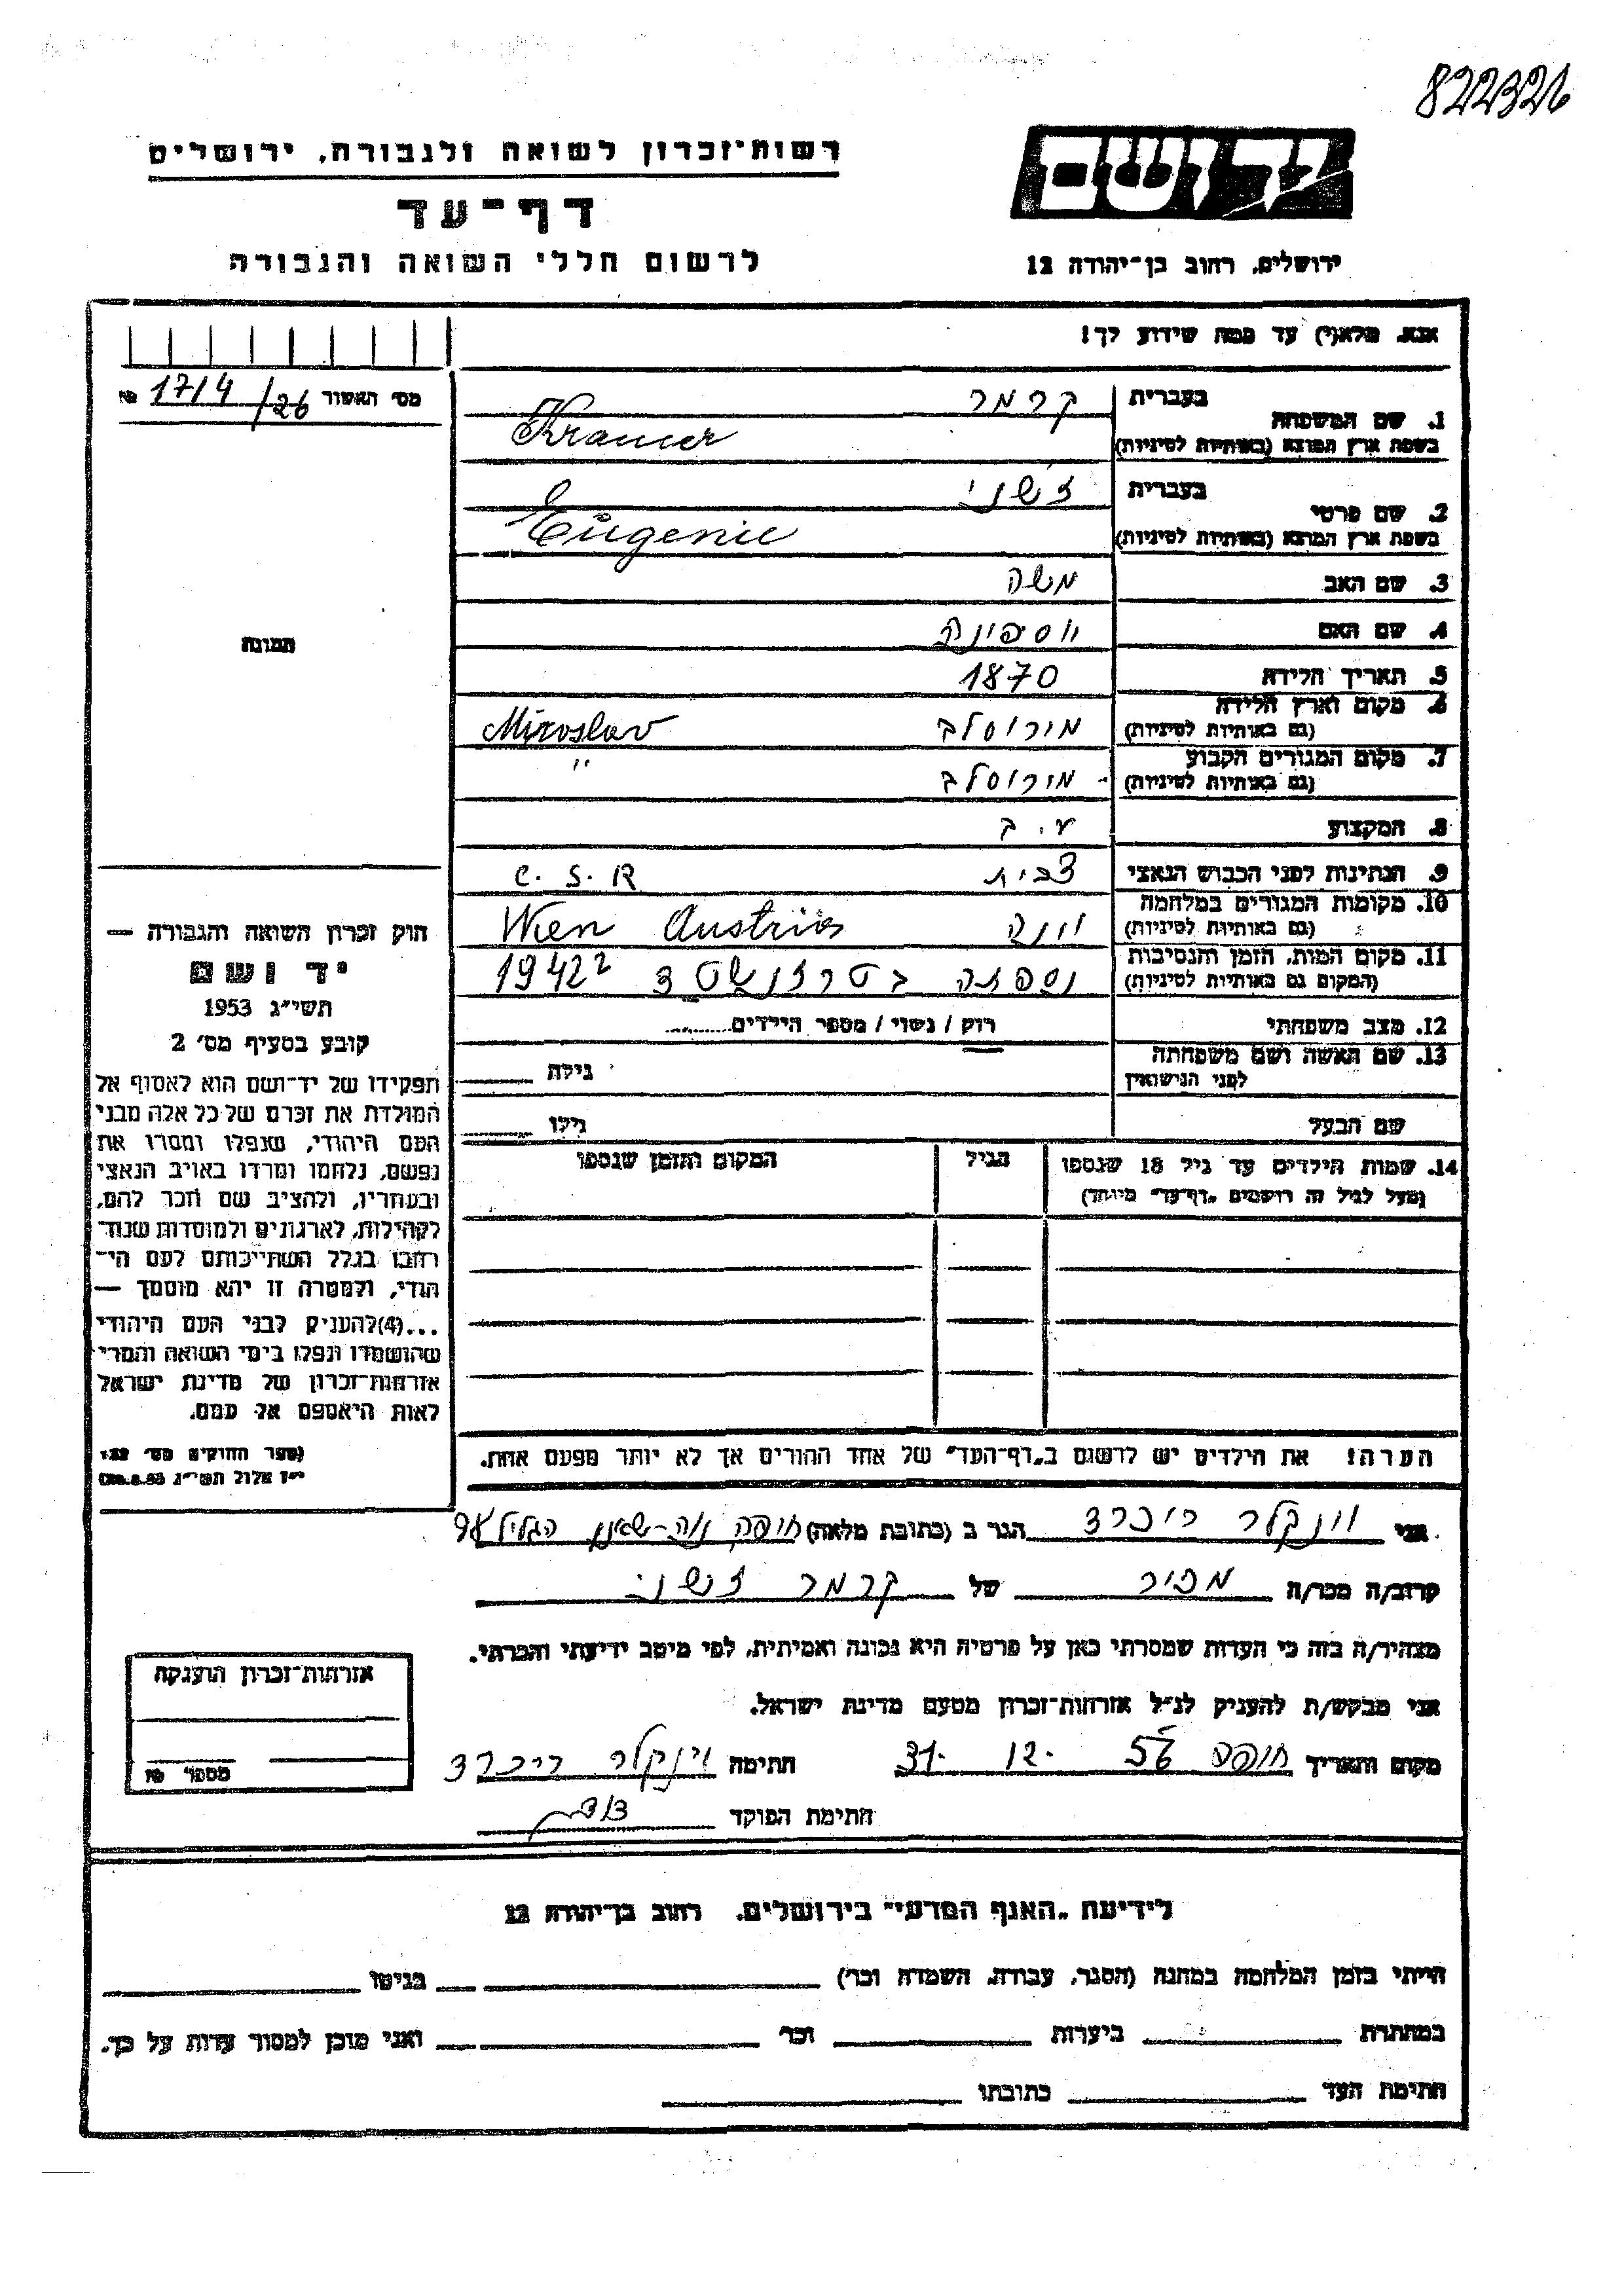 822326
רשות־זכרון לשואה ולגבורה, ירושלים
דף־עד
לרשום חללי השואה והגבורה
יד ושם
ירושלים, רחוב בן־יהודה 12
אנא, מלא(י) עד כמה שידוע לך!
מס' האשור 1714/26 №
1. שם המשפחה
בעברית קרמר
בשפת ארץ המוצא (באותיות לטיניות) Kramer
2. שם פרטי
בעברית ז'שני
בשפת ארץ המוצא (באותיות לטיניות) Eugenie
3. שם האב משה
4. שם האם
5. תאריך הלידה 1870
6. מקום וארץ הלידה
(גם באותיות לטיניות) מירוסלב Miroslav
7. מקום המגורים הקבוע
(גם באותיות לטיניות) מירוסלב "
8. המקצוע ע. ב
9. הנתינות לפני הכבוש הנאצי C. S. R
10. מקומות המגורים במלחמה
(גם באותיות לטיניות) וינה Wien Austria
11. מקום המות, הזמן והנסיבות
(המקום גם באותיות לטיניות) נספתה בטרזנשטד 1942?
12. מצב משפחתי רוק / נשוי / מספר הילדים
13. שם האשה ושם משפחתה
לפני הנישואין גילה
שם הבעל גילו
14. שמות הילדים עד גיל 18 שנספו
(מעל לגיל זה רושמים "דף־עד" מיוחד)
הגיל
המקום והזמן שנספו
הערה! את הילדים יש לרשום ב"דף־העד" של אחד ההורים אך לא יותר מפעם אחת.
תמונה
חוק זכרון השואה והגבורה —
יד ושם
תשי"ג 1953
קובע בסעיף מס' 2
תפקידו של יד־ושם הוא לאסוף אל
המולדת את זכרם של כל אלה מבני
העם היהודי, שנפלו ומסרו את
נפשם, נלחמו ומרדו באויב הנאצי
ובעוזריו, ולהציב שם וזכר להם,
לקהילות, לארגונים ולמוסדות שנח־
רבו בגלל השתייכותם לעם הי־
הודי, ולמטרה זו יהא מוסמך —
...(4)להעניק לבני העם היהודי
שהושמדו ונפלו בימי השואה והמרי
אזרחות־זכרון של מדינת ישראל
לאות היאספם אל עמם.
(ספר החוקים מס' 132
י"ז אלול תשי"ג 28.8.53)
אני וינקלר ריכרד הגר ב (כתובת מלאה) חיפה נוה-שאנן הגליל
קרוב/ה מכר/ה מכיר של קרמר ז'שני
מצהיר/ה בזה כי העדות שמסרתי כאן על פרטיה היא נכונה ואמיתית, לפי מיטב ידיעתי והכרתי.
אני מבקש/ת להעניק לנ"ל אזרחות־זכרון מטעם מדינת ישראל.
מקום ותאריך חיפה 31. 12. 56 חתימה וינקלר ריכרד
חתימת הפוקד
אזרחות־זכרון הוענקה
מספר №
לידיעת "האנף המדעי" בירושלים, רחוב בן־יהודה 12
הייתי בזמן המלחמה במחנה (הסגר, עבודה, השמדה וכו') בגיטו
במחתרת ביערות וכו' ואני מוכן למסור עדות על כך.
חתימת העד כתובתו